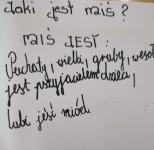 Jaki jest miś?
miś JEST:
Puchaty, wielki, gruby, weso
jest przyjacielem dzieci,
Lubi jeść miód.